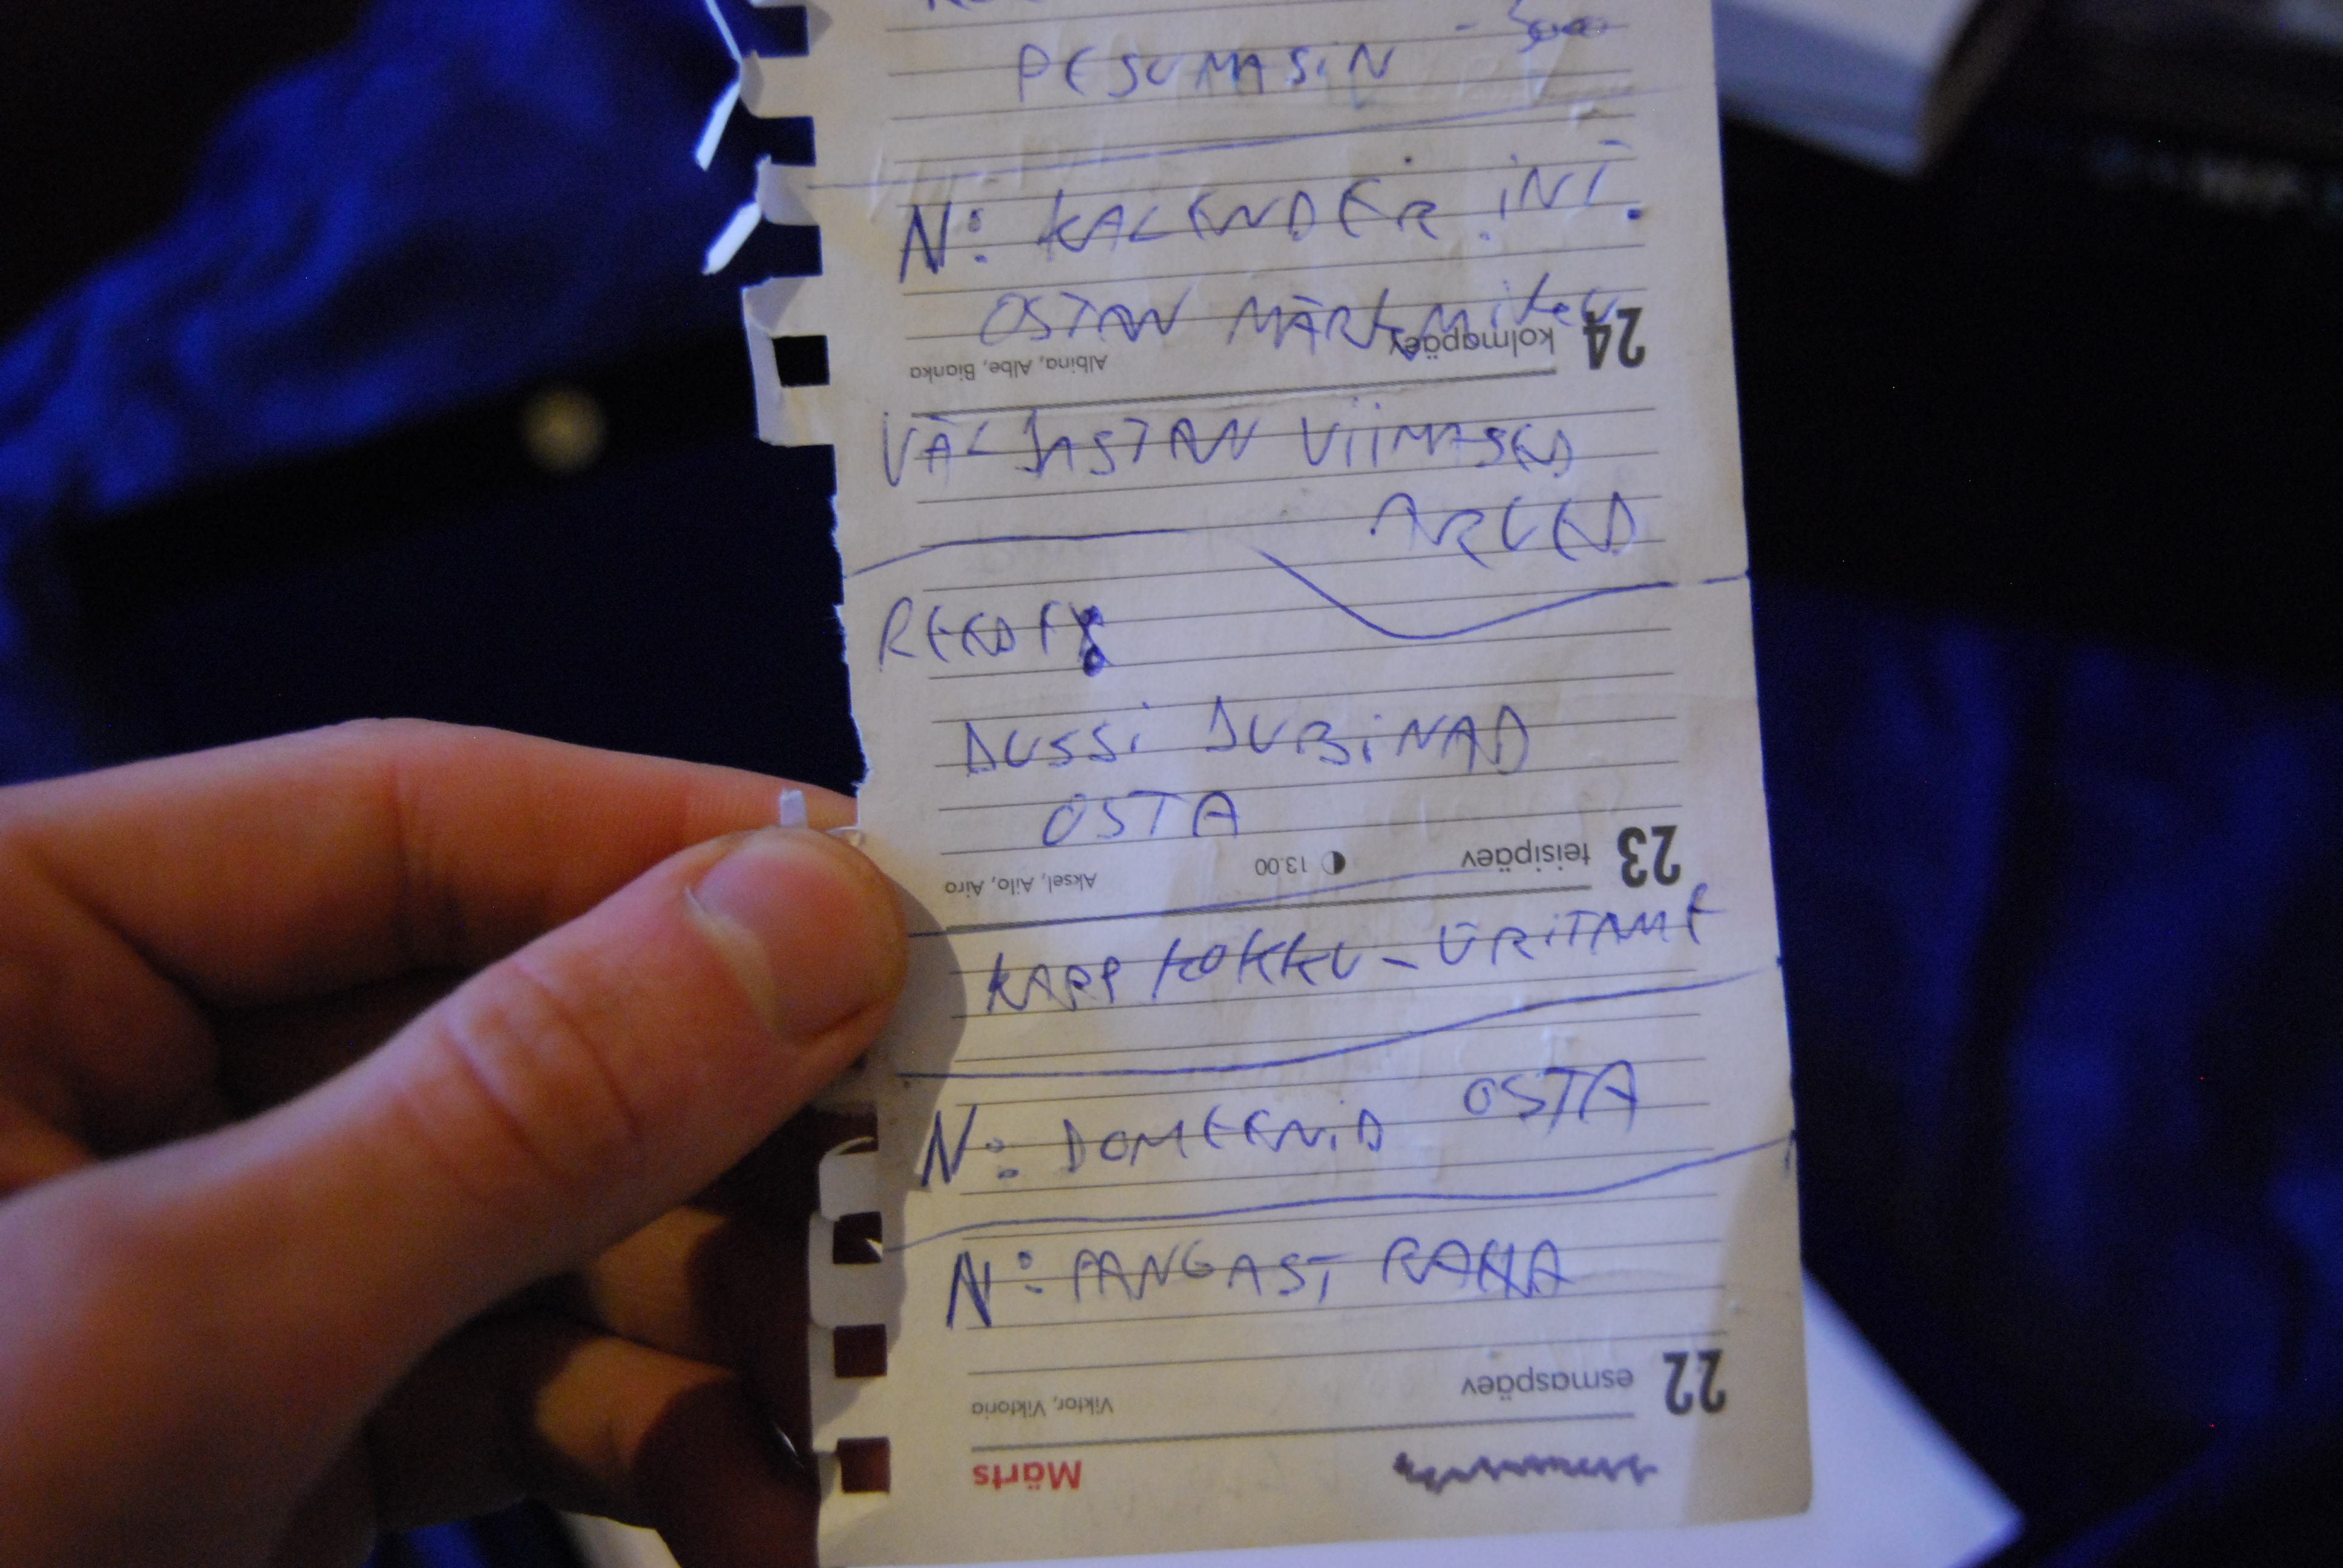 PESUMASIN -
N: KALENDER. INT.
OSTAN MÄRKMIKU
24 kolmapäev
Albina, Albe, Bianka
VÄLJASTAN VIIMASED
ARVED
REEDE:
BUSSI JUBINAD
OSTA
23 teisipäev 13.00
Aksel, Ailo, Airo
KAPP KOKKU - ÜRITAME
N: DOMEENID OSTA
N: PANGAST RAHA
22 esmaspäev
Viktor, Viktoria
Märts